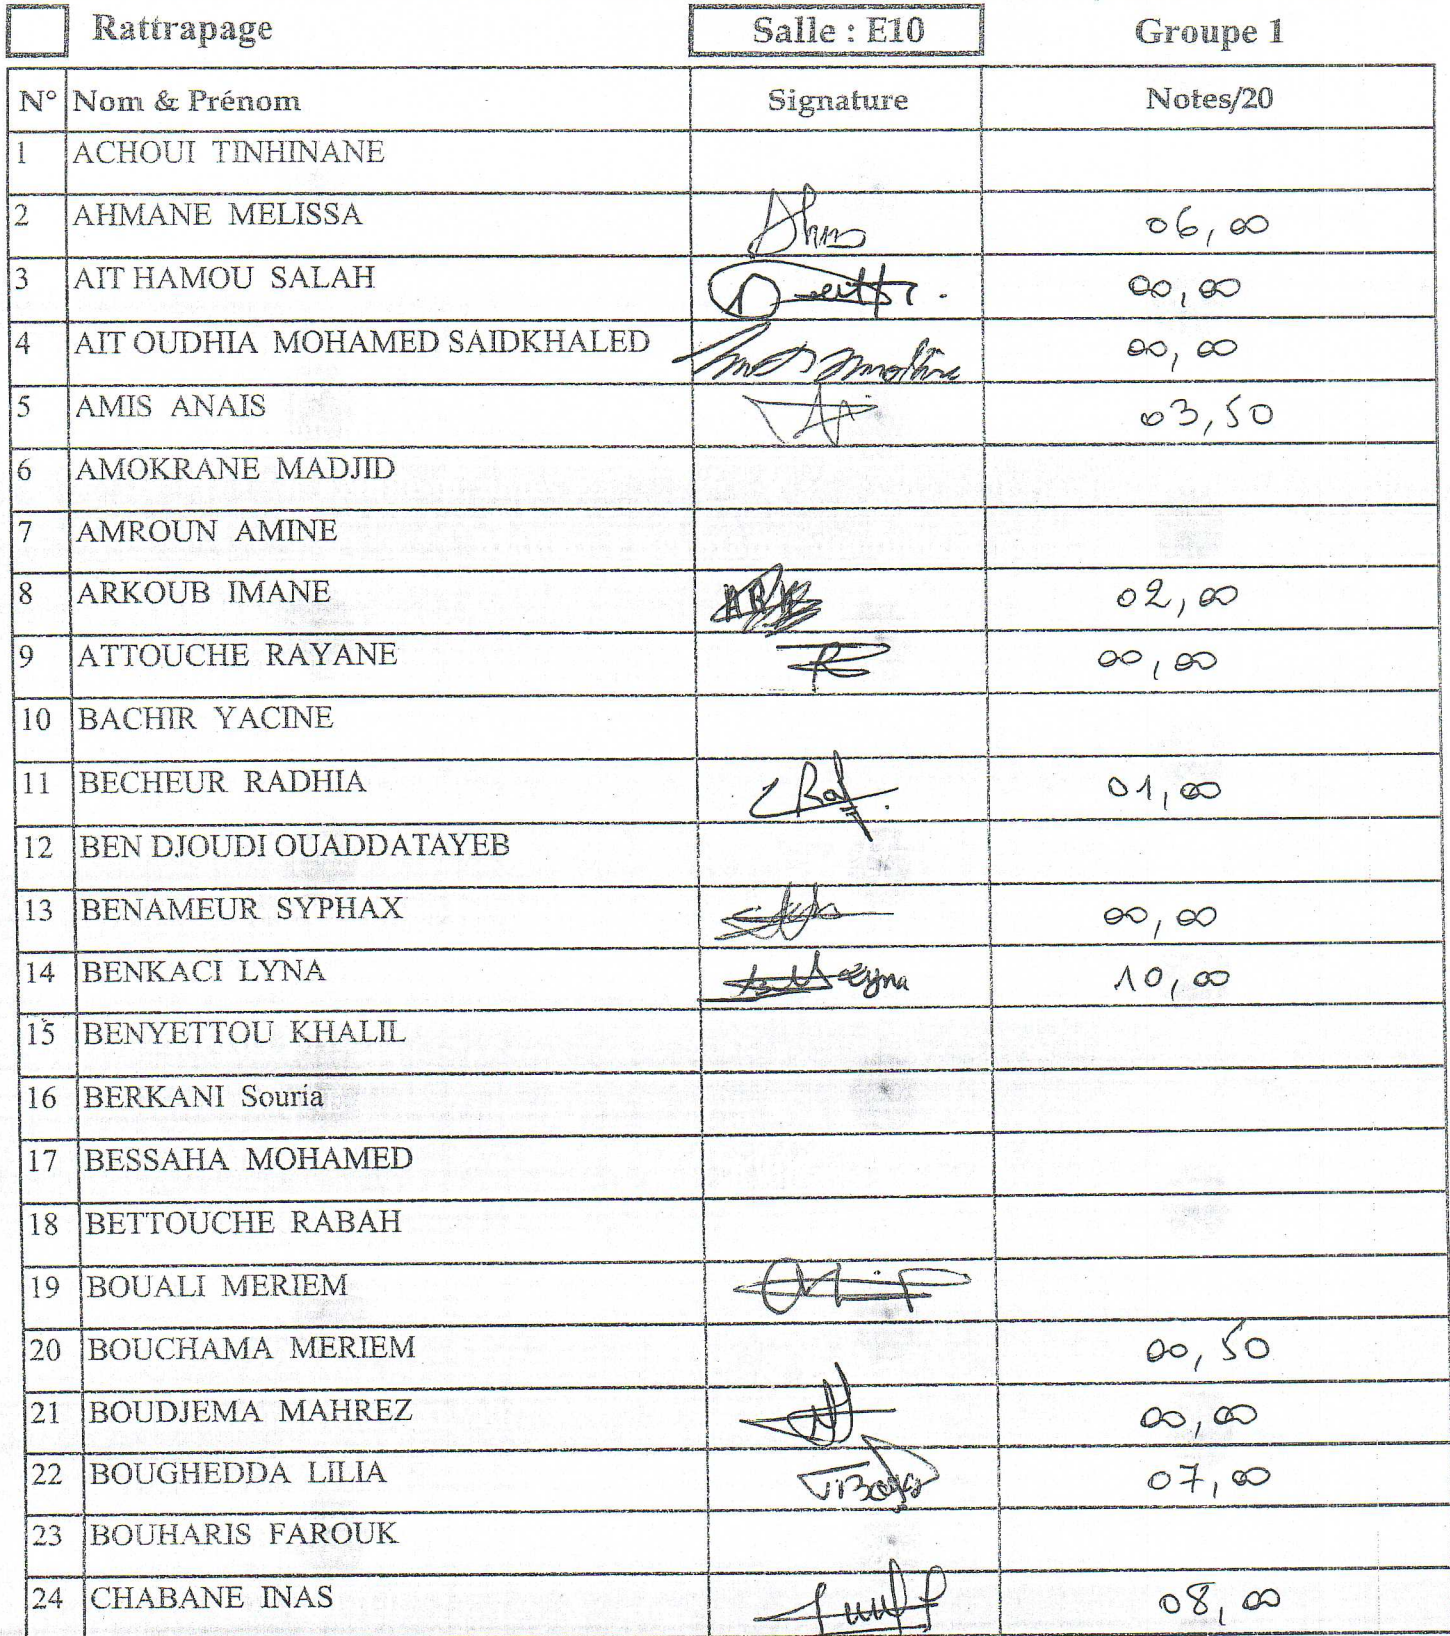 Rattrapage Salle : E10 Groupe 1
N° Nom & Prénom Signature Notes/20
1 ACHOUI TINHINANE
2 AHMANE MELISSA 06,00
3 AIT HAMOU SALAH 00,00
4 AIT OUDHIA MOHAMED SAIDKHALED 00,00
5 AMIS ANAIS 03,50
6 AMOKRANE MADJID
7 AMROUN AMINE
8 ARKOUB IMANE 02,00
9 ATTOUCHE RAYANE 00,00
10 BACHIR YACINE
11 BECHEUR RADHIA 01,00
12 BEN DJOUDI OUADDATAYEB
13 BENAMEUR SYPHAX 00,00
14 BENKACI LYNA 10,00
15 BENYETTOU KHALIL
16 BERKANI Souria
17 BESSAHA MOHAMED
18 BETTOUCHE RABAH
19 BOUALI MERIEM
20 BOUCHAMA MERIEM 00,50
21 BOUDJEMA MAHREZ 00,00
22 BOUGHEDDA LILIA 07,00
23 BOUHARIS FAROUK
24 CHABANE INAS 08,00